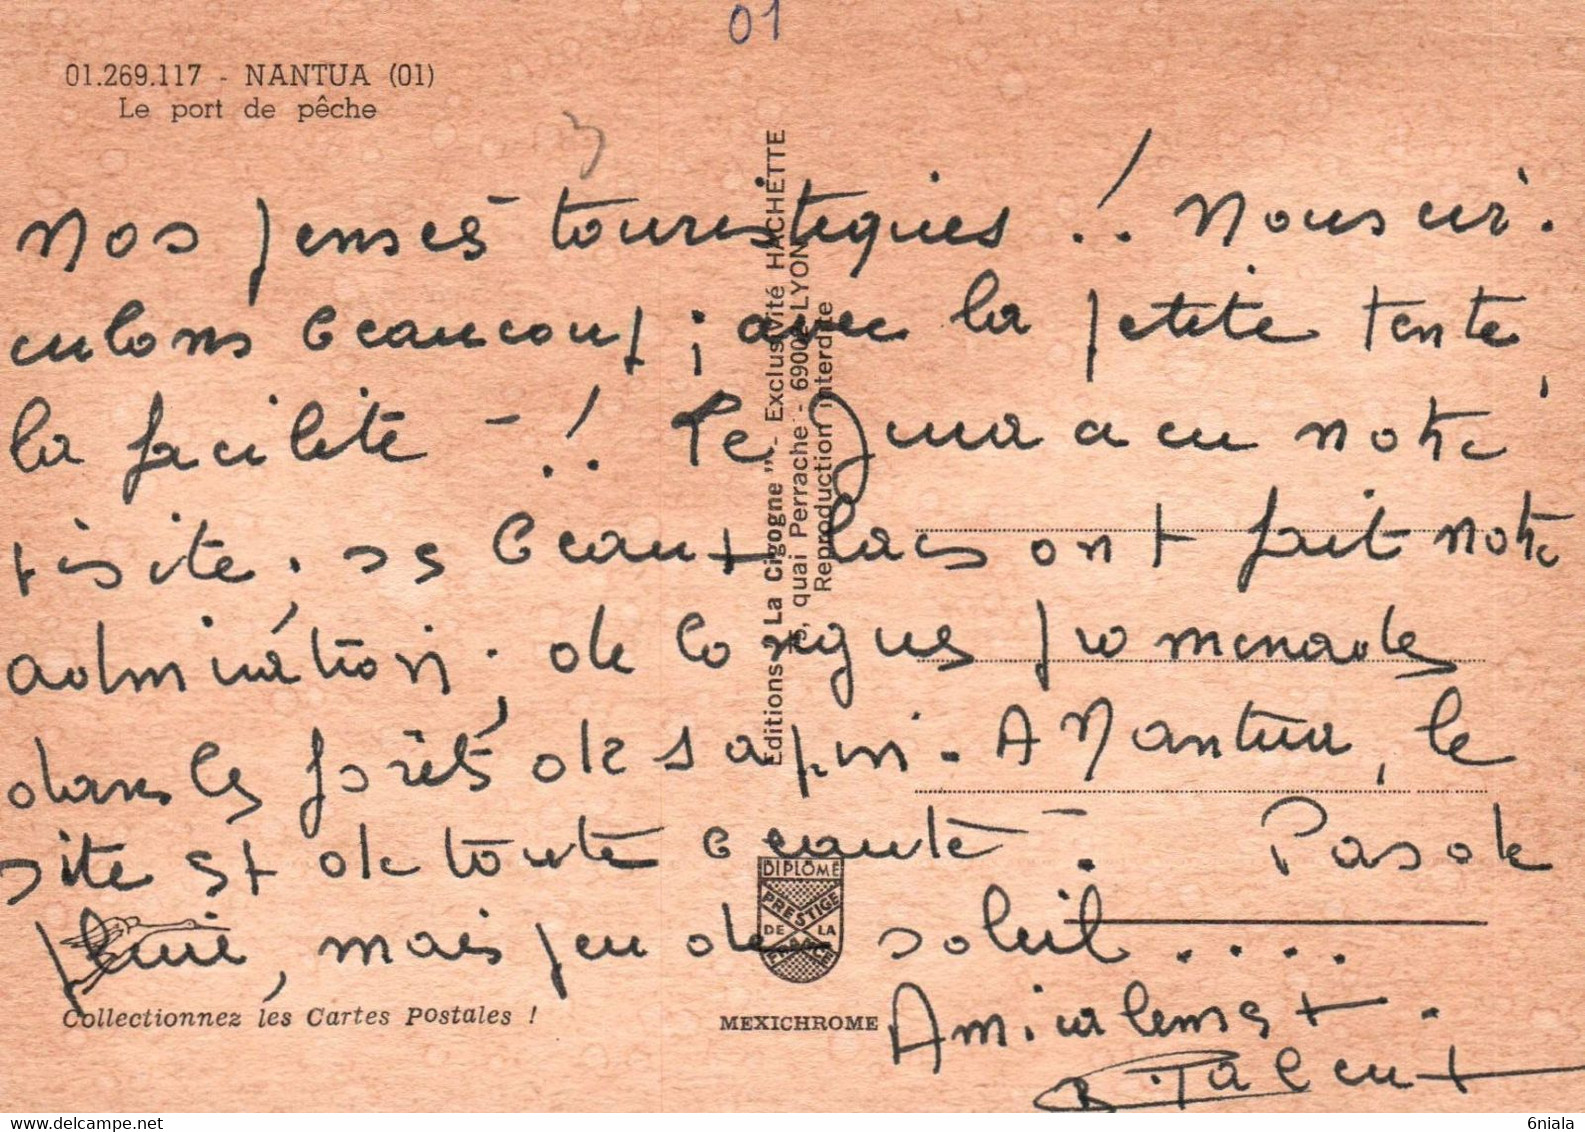 01
01.269.117 - NANTUA (01)
Le port de pêche
Nos pensées touristiques !. Nous cir-
culons beaucoup ; avec la petite tente,
la facilité - !. Le Jura a eu notre
visite. Ses beaux lacs ont fait notre
admiration ; de longues promenades
dans les forêts de sapin. A Nantua, le
site est de toute beauté - Pas de
pluie, mais peu de soleil ....
Amicalement.
Editions "La Cigogne" - Exclusivité HACHETTE
quai Perrache - LYON
Reproduction interdite
DIPLÔME
PRESTIGE
DE LA
FRANCE
Collectionnez les Cartes Postales !
MEXICHROME
delcampe.net
6niala